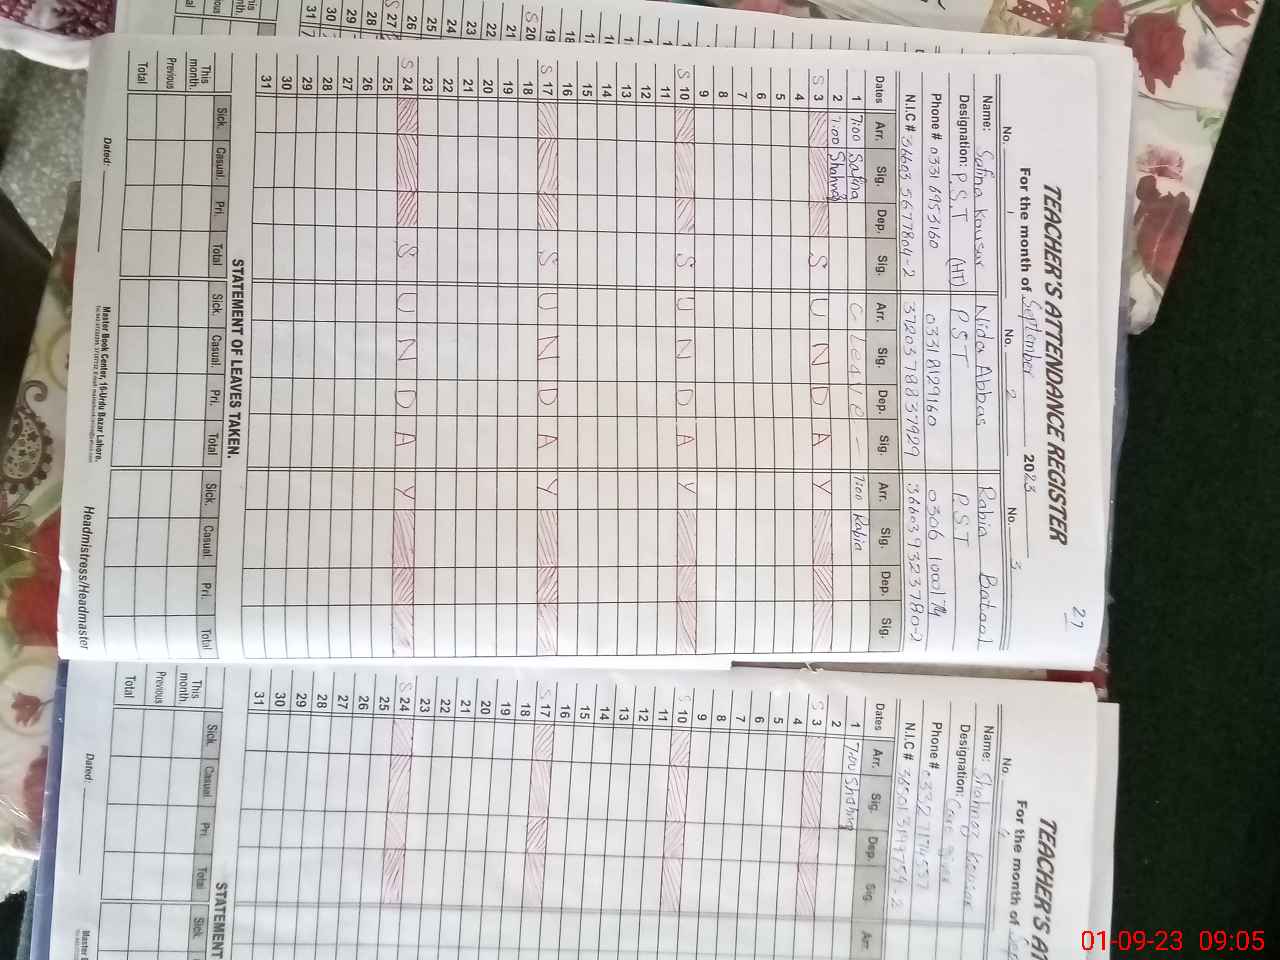 27
TEACHER'S ATTENDANCE REGISTER
For the month of September 2023
No. 1 No. 2 No. 3
Name: Safina Kousar Nida Abbas Rabia Batool
Designation: P.S.T (HT) PST PST
Phone # 0331 6953160 03318129160 0306
N.I.C # 36603 5677804-2 3720378837929 3660393237780-2
Dates Arr. Sig. Dep. Sig. Arr. Sig. Dep. Sig. Arr. Sig. Dep. Sig.
1 7:00 Safina C-Leave - 7:00 Rabia
2 7:00
S 3 S U N D A Y
4
5
6
7
8
9
S 10 S U N D A Y
11
12
13
14
15
16
S 17 S U N D A Y
18
19
20
21
22
23
S 24 S U N D A Y
25
26
27
28
29
30
31
STATEMENT OF LEAVES TAKEN.
Sick. Casual. Pri. Total Sick. Casual. Pri. Total Sick. Casual. Pri. Total
This month.
Previous
Total
Dated:
Master Book Center, 16-Urdu Bazar Lahore.
Headmistress/Headmaster
TEACHER'S AT
For the month of Sep
No. 4
Name: Shahnaz Kousar
Designation: Care giver
Phone #
N.I.C #
Dates Arr. Sig. Dep. Sig. Arr
1 7:00
2
S 3
4
5
6
7
8
9
S 10
11
12
13
14
15
16
S 17
18
19
20
21
22
23
S 24
25
26
27
28
29
30
31
STATEMENT
Sick. Casual. Pri. Total Sick.
This month.
Previous
Total
Dated:
Master B
01-09-23 09:05